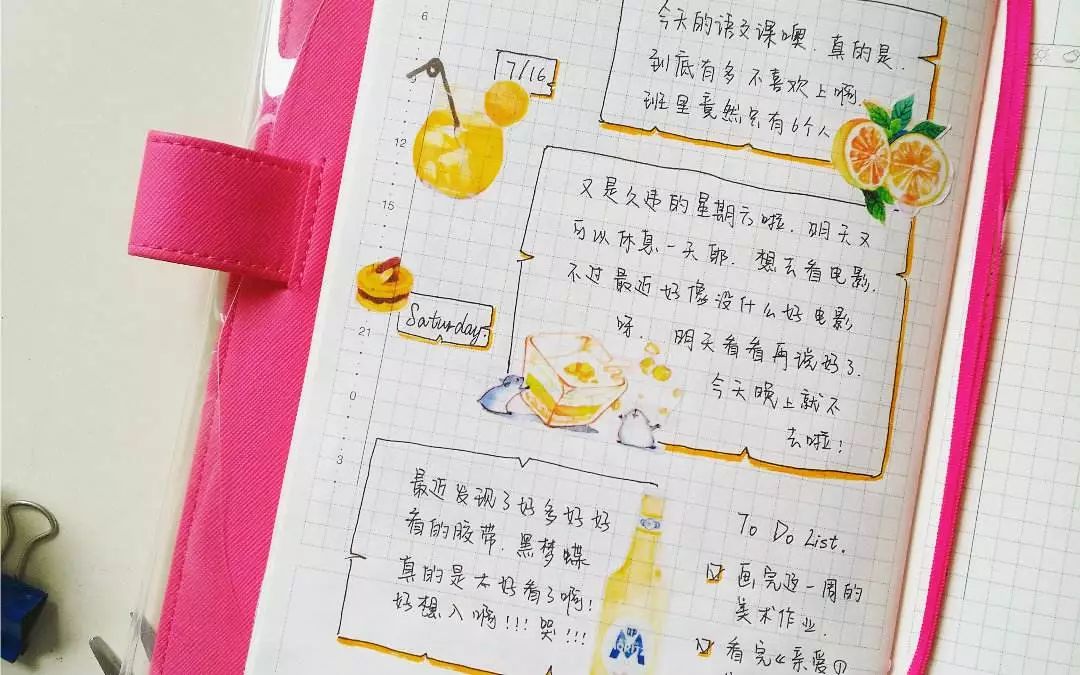 6
7/16
12
15
Saturday.
21
0
3
今天的语文课噢.真的是.
到底有多不喜欢上啊
班里竟然只有6个人
又是久违的星期六啦.明天又
可以休息一天耶.想去看电影.
不过最近好像没什么好电影
呀.明天看看再说好了.
今天晚上就不
去啦!
最近发现了好多好好
看的胶带.黑梦蝶
真的是太好看了啊!
好想入啊!!!哭!!!
MORITZ
To Do List.
画完这一周的
美术作业.
看完《亲爱的